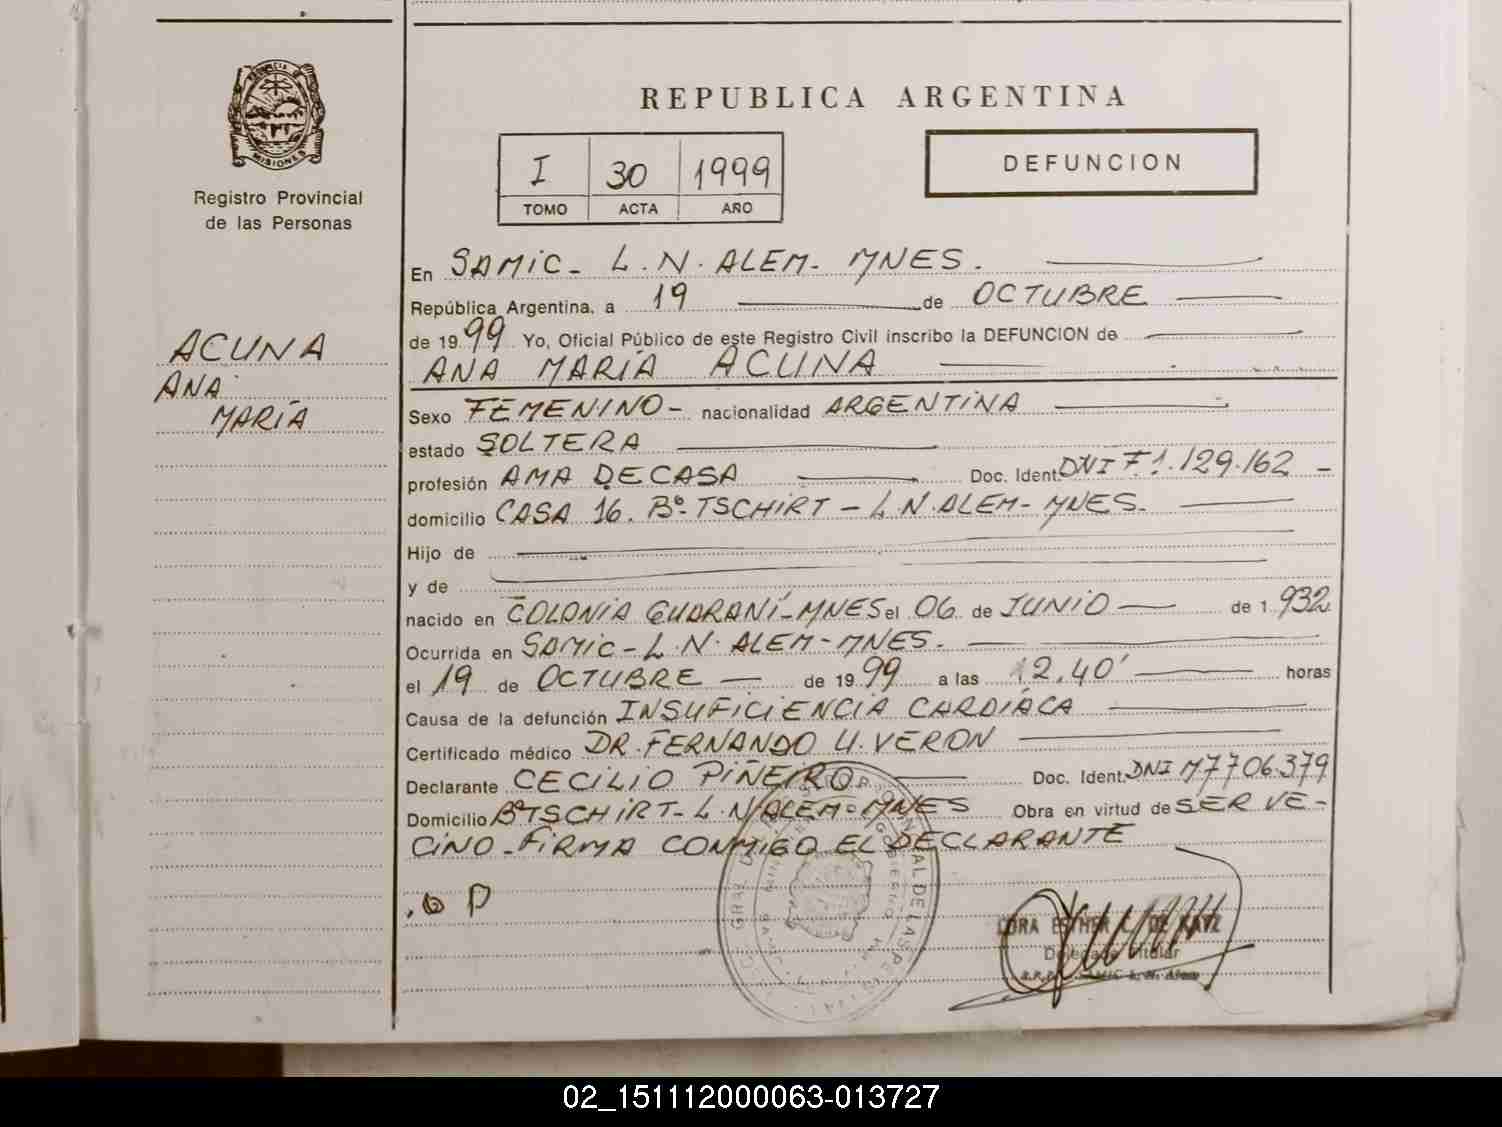 PROVINCIA DE
MISIONES
Registro Provincial
de las Personas
ACUNA
ANA
MARÍA
REPUBLICA ARGENTINA
I 30 1999
TOMO ACTA AÑO
DEFUNCION
En SAMIC - L.N. ALEM - MNES.
República Argentina, a 19 de OCTUBRE
de 1999 Yo, Oficial Público de este Registro Civil inscribo la DEFUNCION de
ANA MARÍA ACUNA
Sexo FEMENINO - nacionalidad ARGENTINA
estado SOLTERA
profesión AMA DE CASA Doc. Ident. DNI F1.129.162 -
domicilio CASA 16. Bº TSCHIRT - L.N. ALEM - MNES.
Hijo de
y de
nacido en COLONIA GUARANÍ - MNES el 06 de JUNIO de 1.932
Ocurrida en SAMIC - L.N. ALEM - MNES.
el 19 de OCTUBRE de 1999 a las 12.40' horas
Causa de la defunción INSUFICIENCIA CARDÍACA
Certificado médico DR. FERNANDO U. VERON
Declarante CECILIO PIÑEIRO Doc. Ident. DNI M7706.379
Domicilio Bº TSCHIRT - L.N. ALEM - MNES Obra en virtud de SER VE-
CINO - FIRMA CONMIGO EL DECLARANTE
P
ESTHER DE
Delegada Titular
02_151112000063-013727